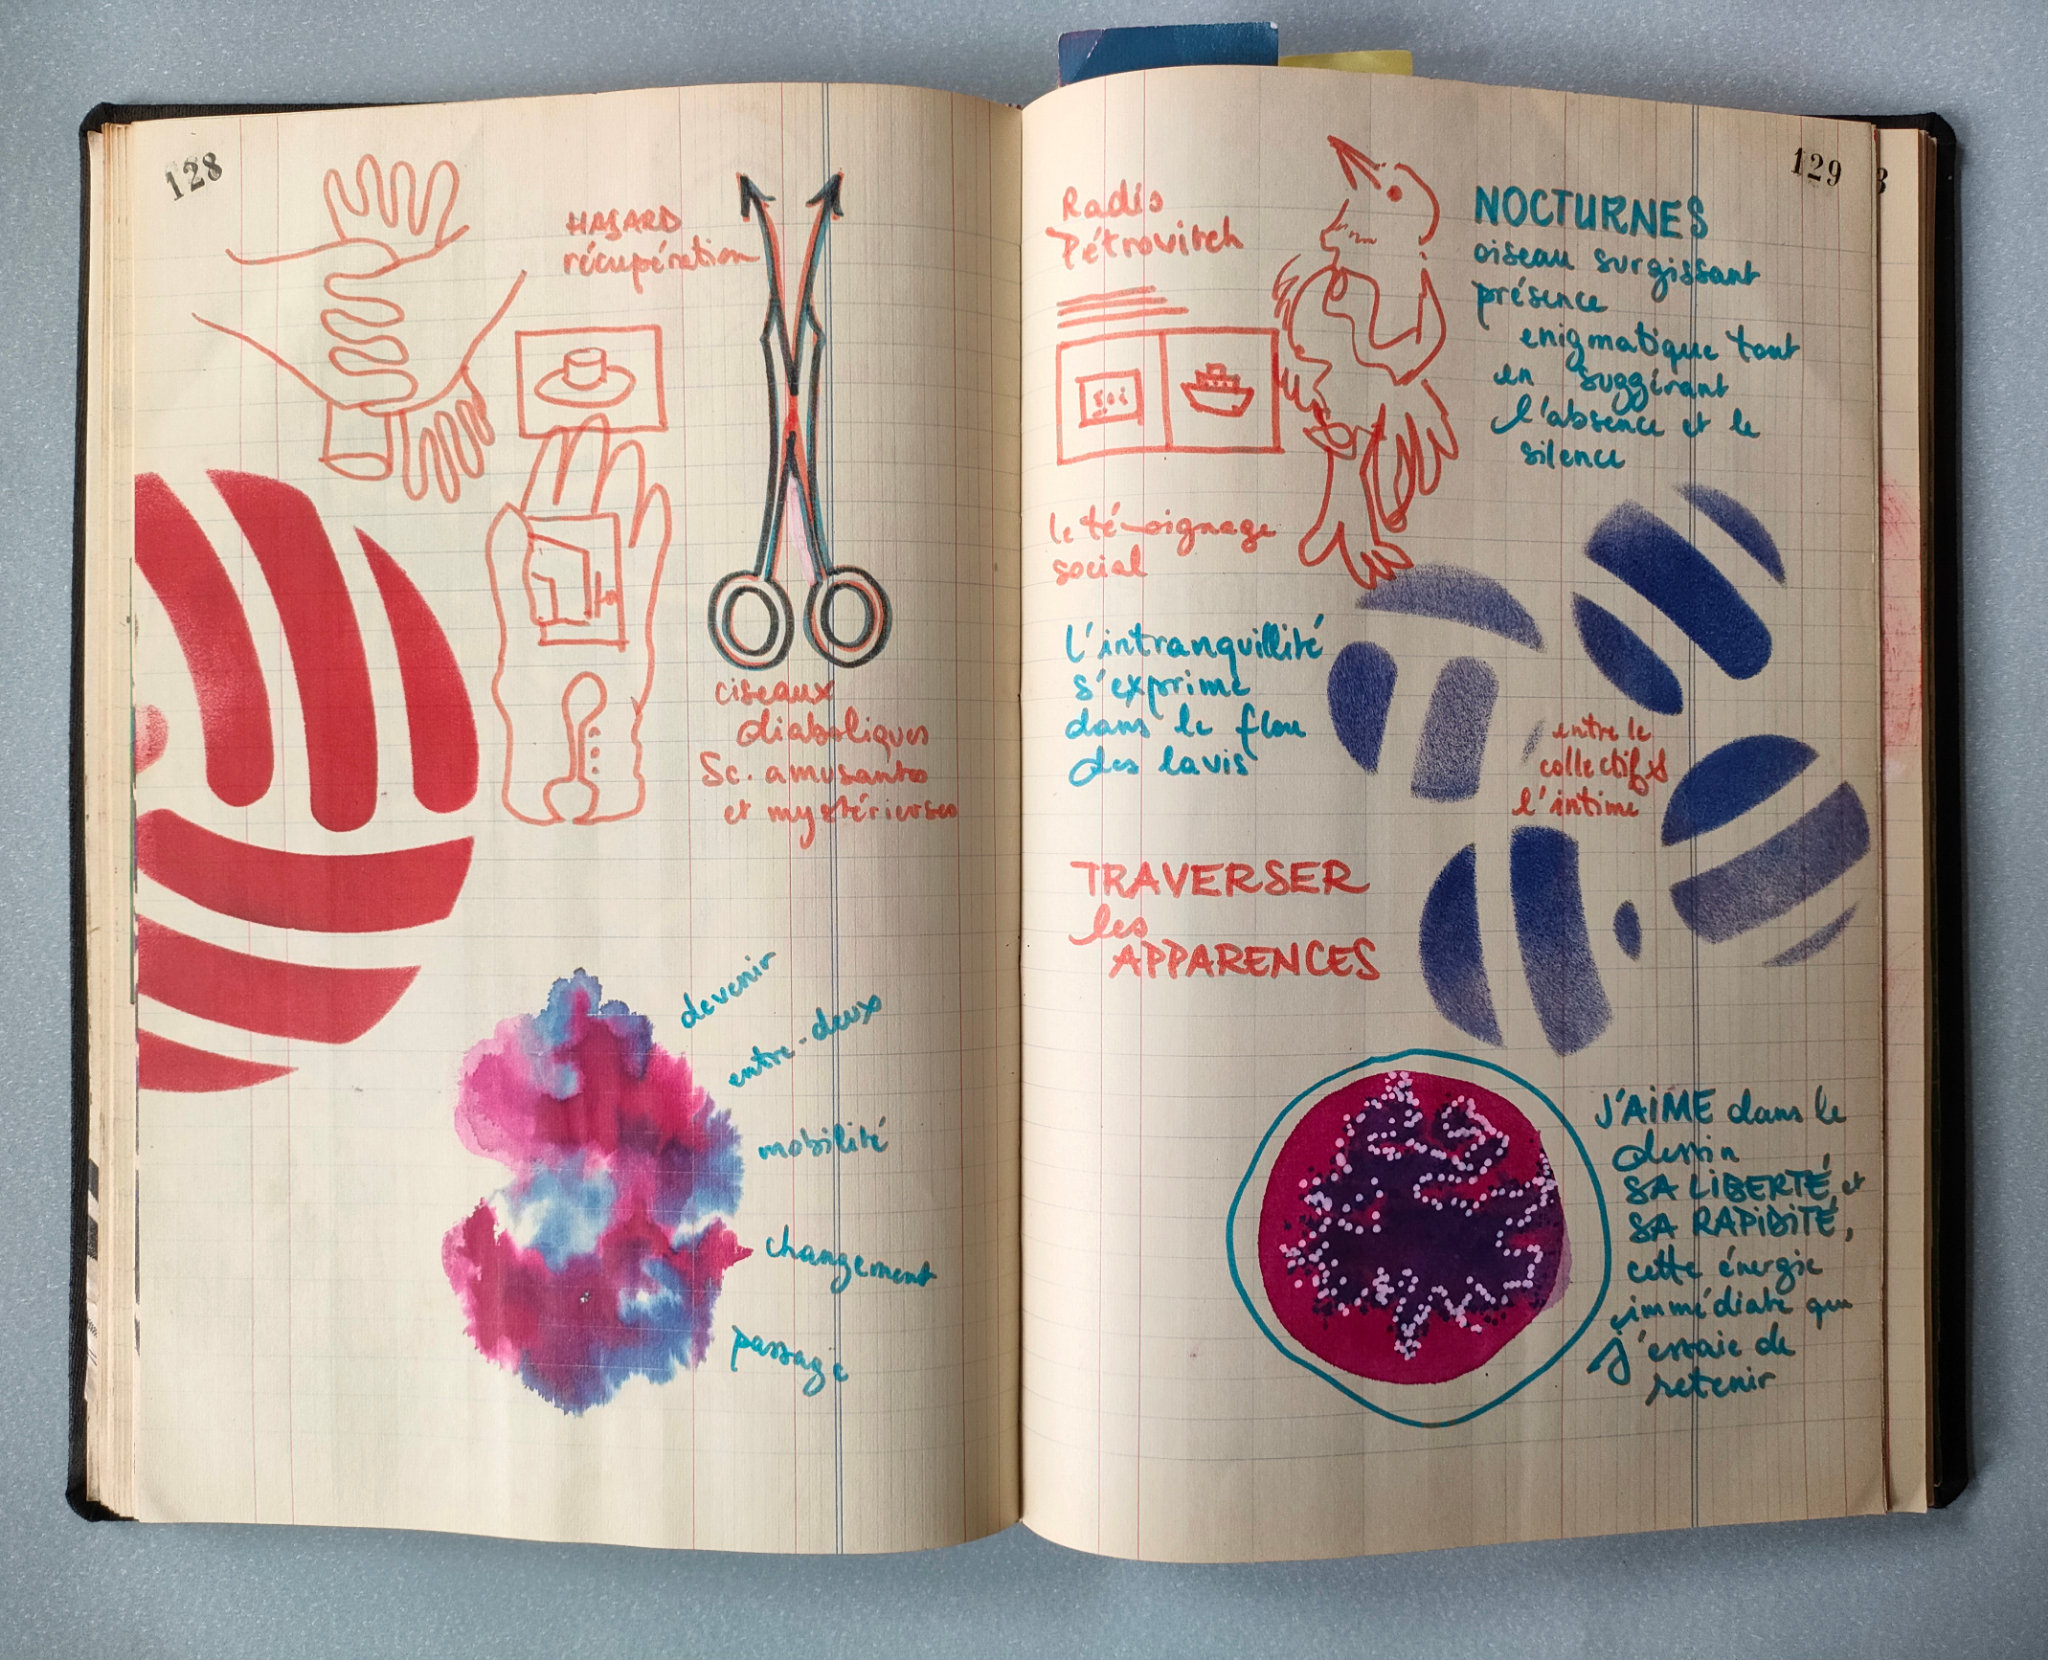 128
HASARD
récupération
ciseaux
diaboliques
Sc. amusantes
et mystérieuses
devenir
entre-deux
mobilité
changement
passage
129
Radis
Pétrovitch
soi
le témoignage
social
NOCTURNES
oiseau surgissant
présence
enigmatique tout
en suggérant
l'absence et le
silence
L'intranquillité
s'exprime
dans le flou
des lavis
entre le
collectif &
l'intime
TRAVERSER
les
APPARENCES
J'AIME dans le
dessin
SA LIBERTÉ et
SA RAPIDITÉ,
cette énergie
immédiate que
j'essaie de
retenir